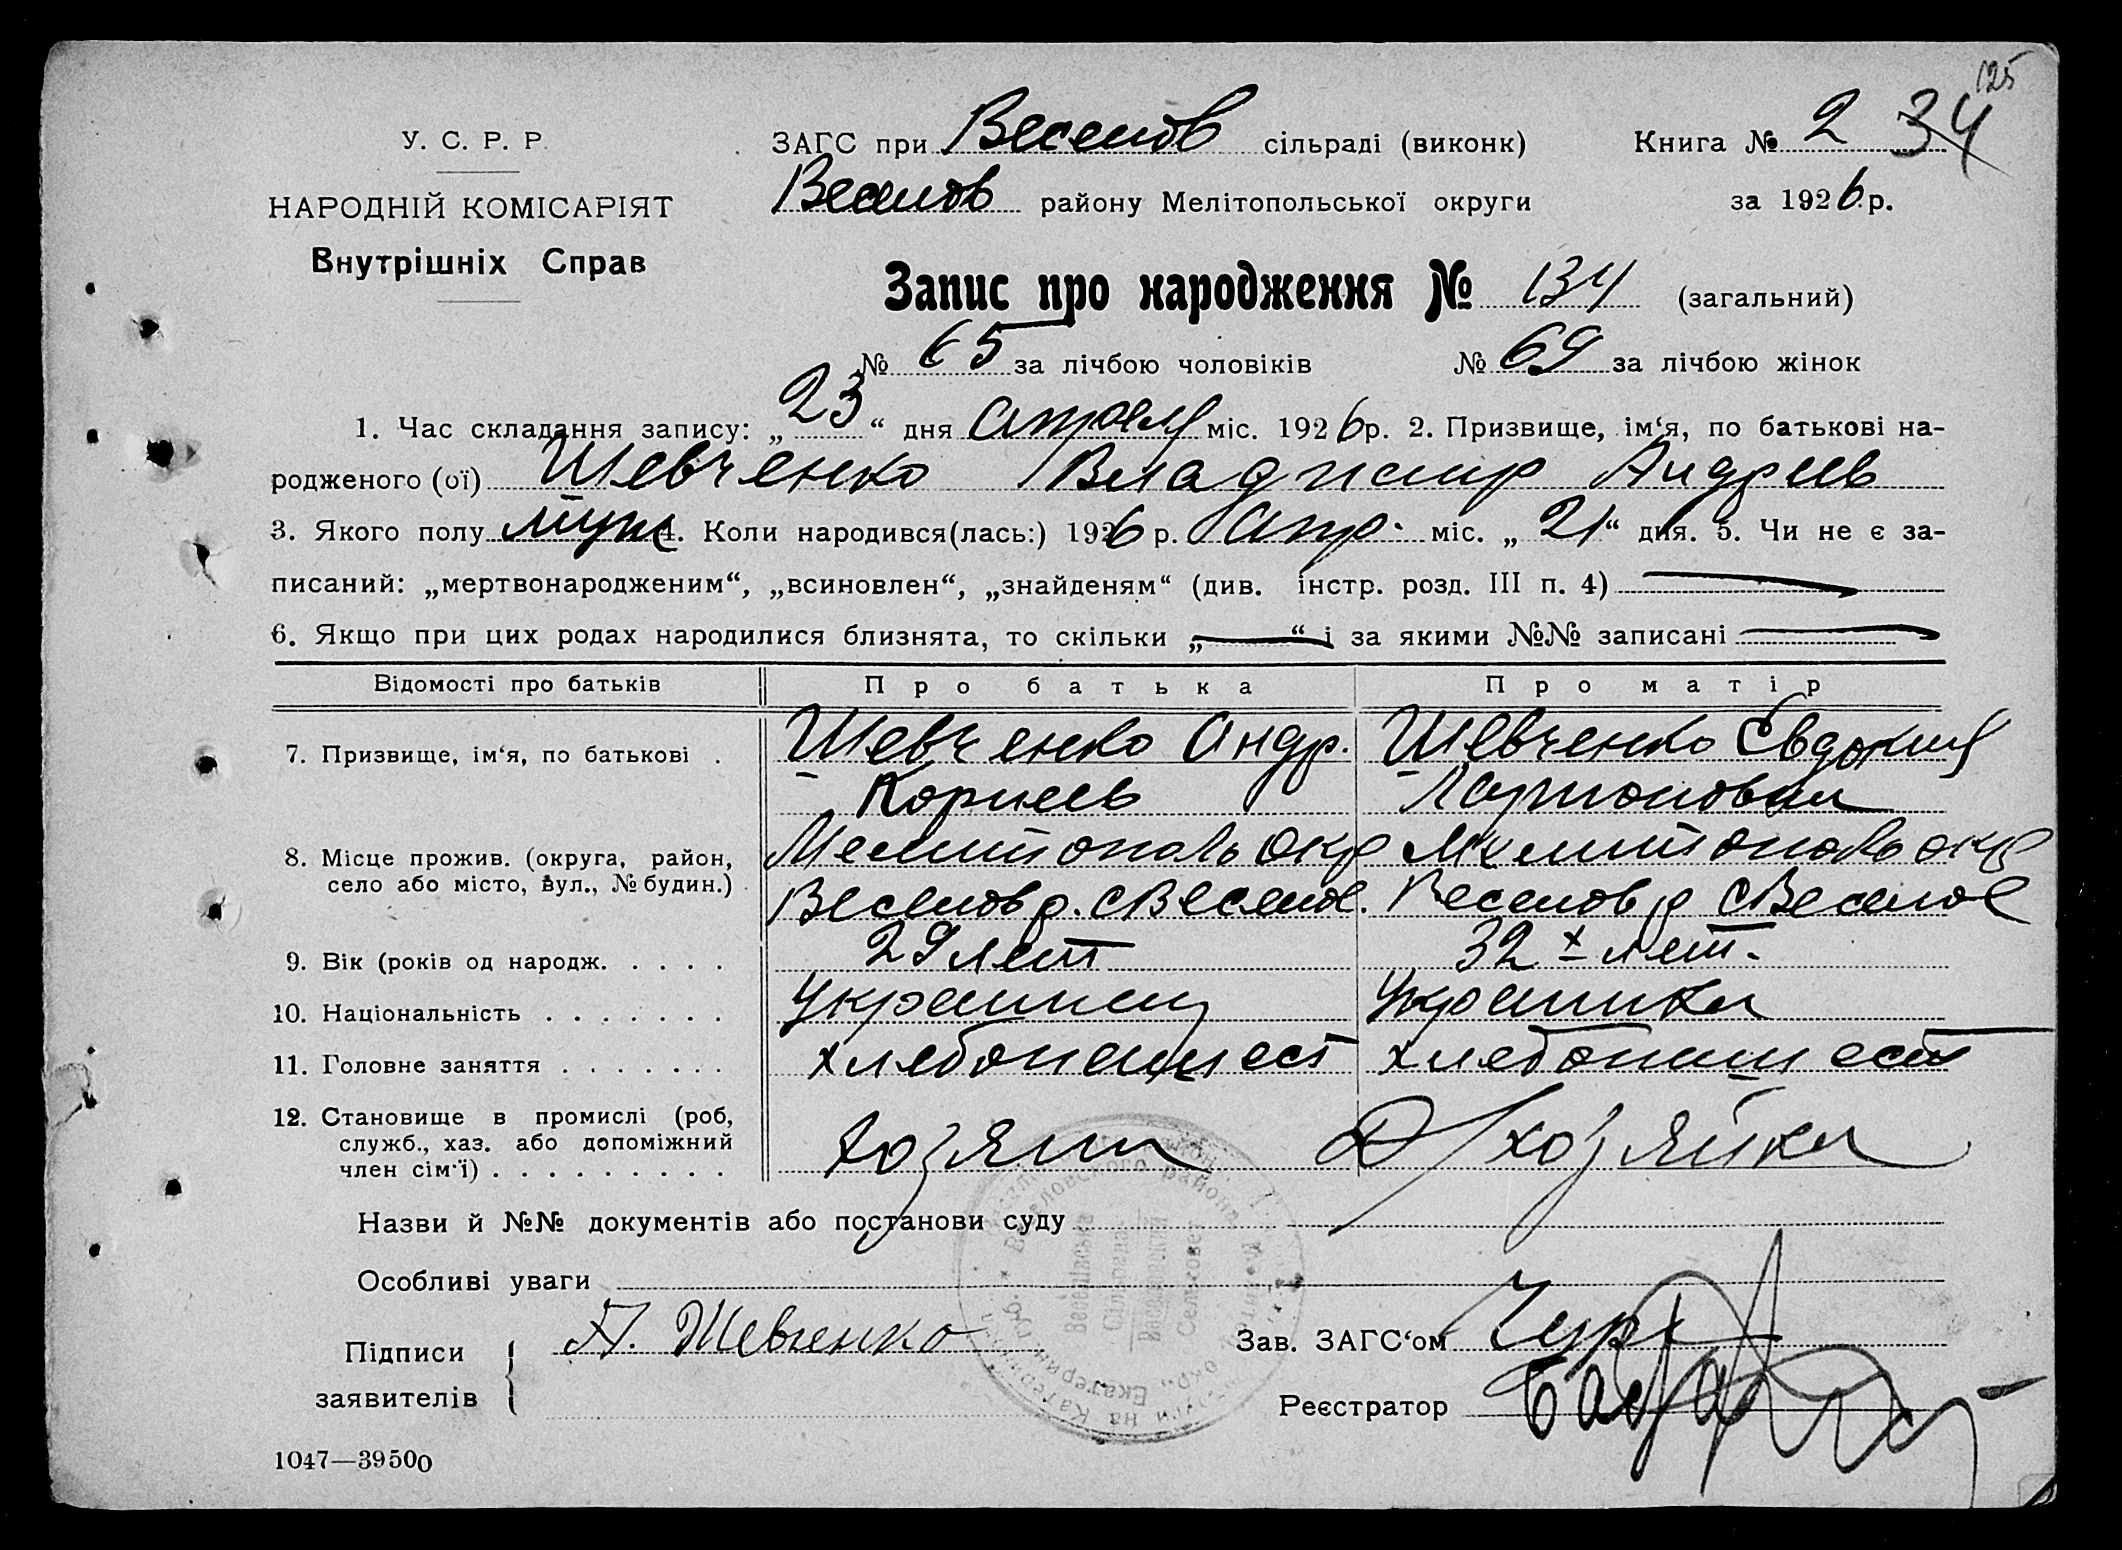 125
У. С. Р. Р. ЗАГС при Веселов сільраді (виконк) Книга № 2 34
НАРОДНІЙ КОМІСАРІЯТ Веселов району Мелітопольської округи за 1926 р.
Внутрішніх Справ
Запис про народження № 134 (загальний)
№ 65 за лічбою чоловіків № 69 за лічбою жінок
1. Час складання запису: „23“ дня апреля міс. 1926 р. 2. Призвище, ім‘я, по батькові на-
родженого (ої) Шевченко Владимир Андреев
3. Якого полу муж 4. Коли народився(лась:) 1926 р. апр. міс. „21“ дня. 5. Чи не є за-
писаний: „мертвонародженим“, „всиновлен“, „знайденям“ (див. інстр. розд. III п. 4)
6. Якщо при цих родах народилися близнята, то скільки „—“ і за якими №№ записані
Відомості про батьків Про батька Про матір
7. Призвище, ім‘я, по батькові . Шевченко Андр. Шевченко Евдокия
Корнеев
8. Місце прожив. (округа, район, Мелитополь окр Мелитополь окр
село або місто, вул., № будин.) Веселов р. с Веселое. Веселов р с Веселое
9. Вік (років од народж. . . . . 29 лет 32 х лет.
10. Національність . . . . . . . Украинец Украинка
11. Головне заняття . . . . . . . хлебопашест хлебопашест
12. Становище в промислі (роб,
служб., хаз. або допоміжний хозяин Д/хозяйка
член сім‘ї) . . . . . . . . .
Назви й №№ документів або постанови суду
Особливі уваги
Підписи А. Шевченко Зав. ЗАГС‘ом
заявителів Реєстратор
1047—39500
Веселівська
Сільрада
Веселовский
Сельсовет
Веселовского района